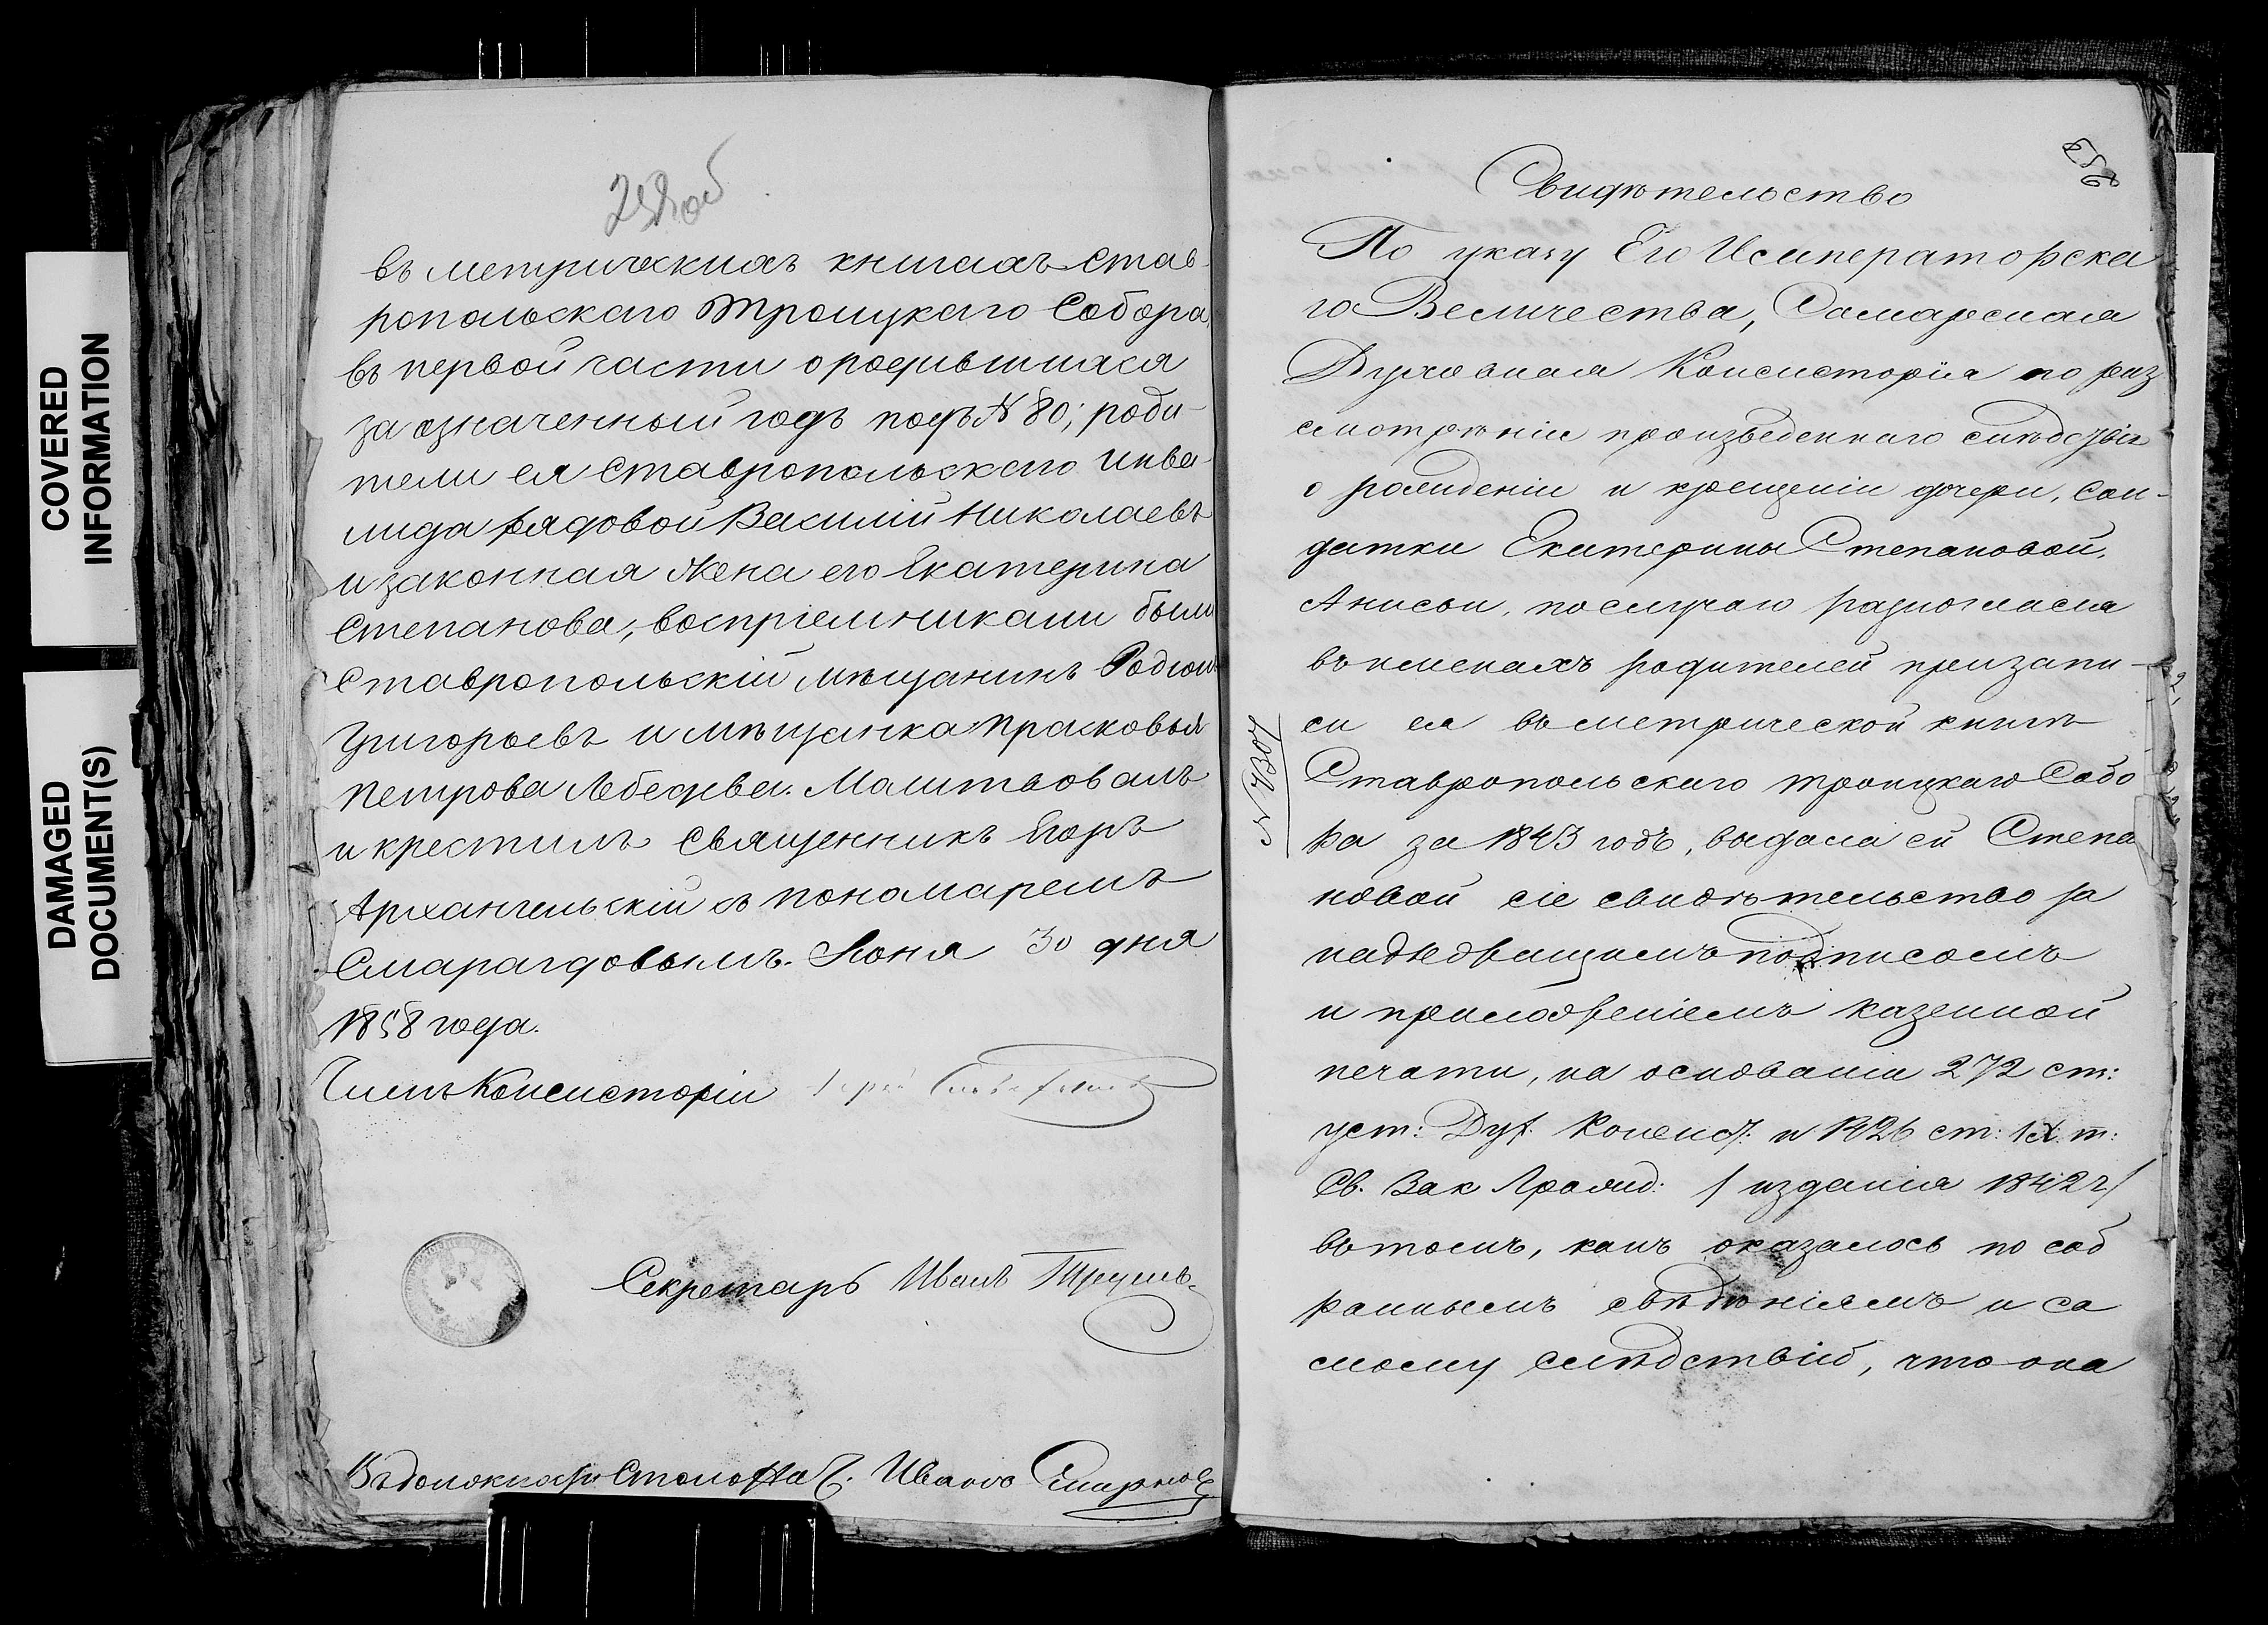 COVERED
INFORMATION
DAMAGED
DOCUMENT(S)
въ метрическихъ книгахъ Став-
ропольскаго Троицкаго Собора,
въ первой части о родившихся
за означенный годъ подъ № 80; роди-
тели ея Ставропольскаго инва-
лида рядовой Василий Николаевъ
и законная жена его Екатерина
Степанова; воспріемниками были
Ставропольскій мѣщанинъ Родіонъ
Григорьевъ и мѣщанка Прасковья
Петрова Лебедева. Молитвовалъ
и крестилъ Священникъ Егоръ
Архангельскій съ пономаремъ
Смарагдовымъ. Іюня 30 дня
1858 года.
Членъ Консисторіи
Секретарь Иванъ
Столонач. Иванъ Смирновъ
Свидѣтельство
По указу Его Императорска
го Величества, Самарская
Духовная Консисторія по раз
смотрѣніи произведеннаго слѣдствія
о рожденіи и крещеніи дочери, Сол-
датки Екатерины Степановой,
Анисьи, по случаю разногласія
въ именахъ родителей при запи-
си ея въ метрической книгѣ
Ставропольскаго Троицкаго Собо
ра за 1843 годъ, выдала ей Степа
новой сіе свидѣтельство за
надлежащимъ подписомъ
и приложеніемъ казенной
печати, на основаніи 272 ст:
уст: Дух. Консист: и 1426 ст: IX т:
Св. Зак Гражд: / изданія 1842 г/
въ томъ, какъ оказалось по соб
раннымъ свѣдѣніямъ и са
мому слѣдствію, что она